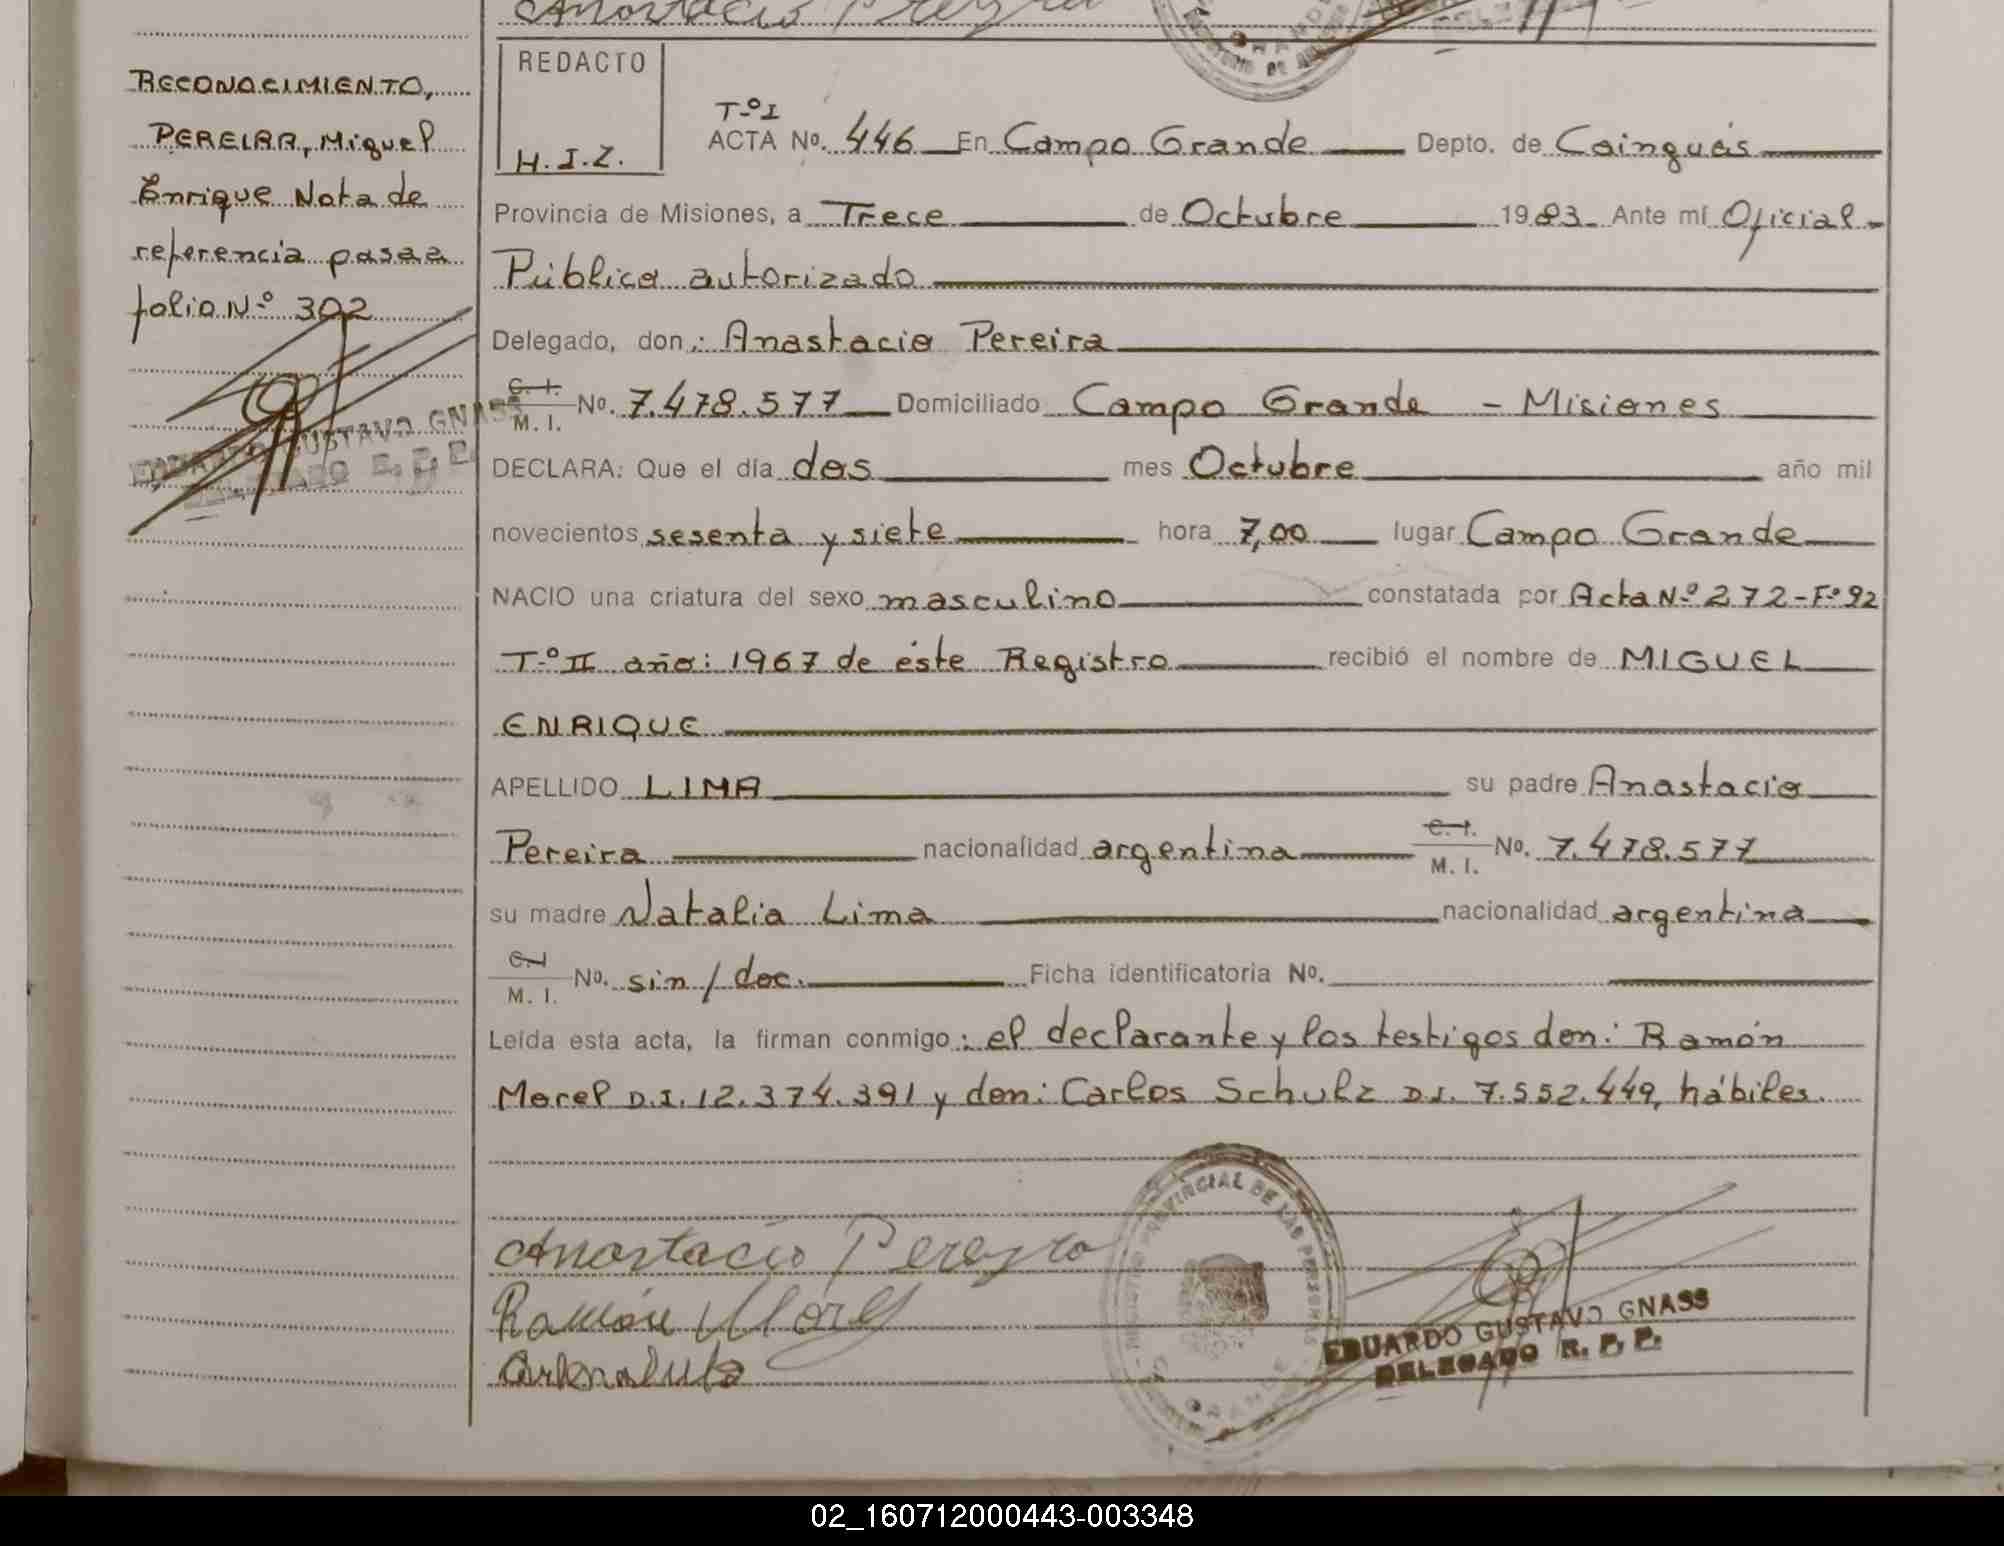 Anastacio Pereyra
RECONOCIMIENTO,
PEREIRA, Miguel
Enrique Nota de
referencia pasa a
folio Nº 302
EDUARDO GUSTAVO GNASS
DELEGADO R. P. P.
REDACTO
H.I.Z.
Tº I
ACTA No. 446 En Campo Grande Depto. de Cainguás
Provincia de Misiones, a Trece de Octubre 1983. Ante mí Oficial
Público autorizado
Delegado, don: Anastacio Pereira
C. I.
M. I. No. 7.478.577 Domiciliado Campo Grande - Misiones
DECLARA: Que el día dos mes Octubre año mil
novecientos sesenta y siete hora 7,00 lugar Campo Grande
NACIO una criatura del sexo masculino constatada por Acta Nº 272-Fº 92
Tº II año: 1967 de éste Registro recibió el nombre de MIGUEL
ENRIQUE
APELLIDO LIMA su padre Anastacio
Pereira nacionalidad argentina C. I. M. I. No. 7.478.577
su madre Natalia Lima nacionalidad argentina
C. I
M. I. No. sin/doc. Ficha identificatoria No.
Leída esta acta, la firman conmigo: el declarante y los testigos don: Ramón
Morel D.I. 12.374.391 y don: Carlos Schulz D.I. 7.552.449, hábiles.
Anastacio Pereyra
Ramón Morel
REGISTRO PROVINCIAL DE LAS PERSONAS
EDUARDO GUSTAVO GNASS
DELEGADO R. P. P.
02_160712000443-003348